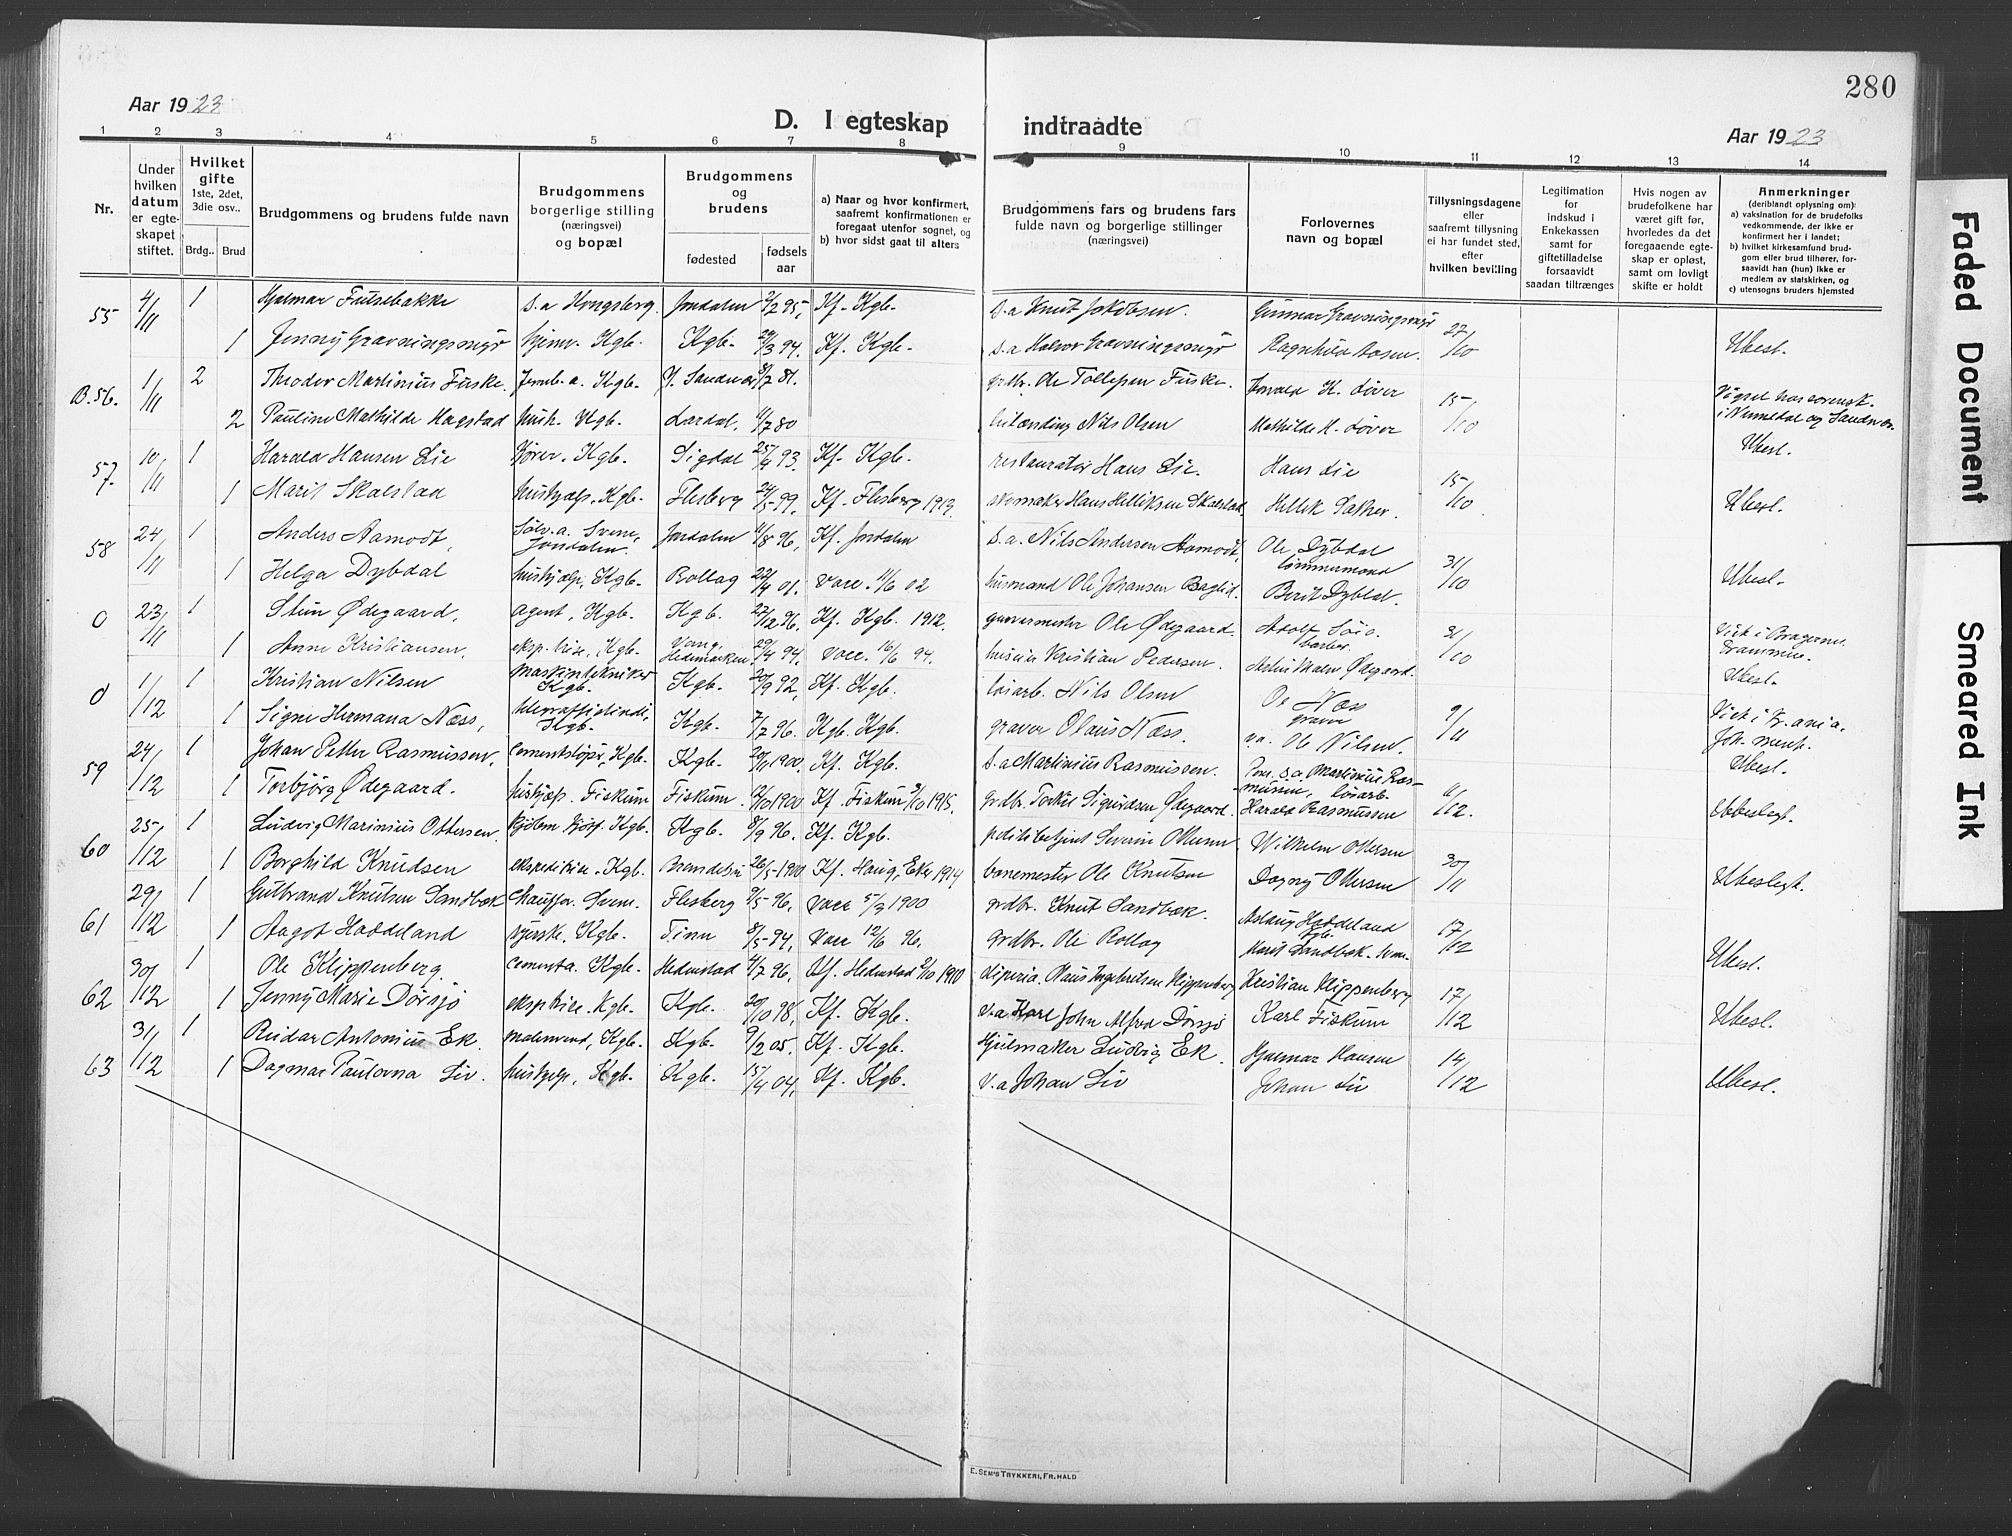 280
Aar 1923
D. I egteskap indtraadte
Aar 1923
1 2 3 4 5 6 7 8 9 10 11 12 13 14
Nr.
Under
hvilken
datum
er egte-
skapet
stiftet.
Hvilket
gifte
1ste, 2det,
3die osv..
Brdg.. Brud
Brudgommens og brudens fulde navn
Brudgommens
borgerlige stilling
(næringsvei)
og bopæl
Brudgommens
og
brudens
fødested
fødsels
aar
a) Naar og hvor konfirmert,
saafremt konfirmationen er
foregaat utenfor sognet, og
b) hvor sidst gaat til alters
Brudgommens fars og brudens fars
fulde navn og borgerlige stillinger
(næringsvei)
Forlovernes
navn og bopæl
Tillysningsdagene
eller
saafremt tillysning
ei har fundet sted,
efter
hvilken bevilling
Legitimation
for
indskud i
Enkekassen
samt for
giftetilladelse
forsaavidt
saadan tiltrænges
Hvis nogen av
brudefolkene har
været gift før,
hvorledes da det
foregaaende egte-
skap er opløst,
samt om lovligt
skifte er holdt
Anmerkninger
(deriblandt oplysning om):
a) vaksination for de brudefolks
vedkommende, der ikke er
konfirmert her i landet;
b) hvilket kirkesamfund brud-
gom eller brud tilhører, for-
saavidt han (hun) ikke er
medlem av statskirken, og
c) utensogns bruders hjemsted
55 4/11 1 Hjalmar Fulsebakke s.a Kongsberg. Jondalen 3/2 95, Kf. Kgb. s.a Knut Jakobsen. Gunnar Gravningsmyr 27/10
1 Jenny Gravningsmyr hjemv. Kgb. Kgb. 24/3 94. Kf. Kgb. s.a Halvor Gravningsmyr Ragnhild Aasen. Ubesl.
B.56. 1/11 2 Theodor Martinius Fuske. Jernb.a. Kgb. Y. Sandvær 8/7 81. grdbr. Ole Tollefsen Fuske. K. Løver 15/10
2 Pauline Mathilde Hagstad hush. Kgb. Lardal. 11/7 80 Nils Olsen Mathilde K. Løver i Numedal og
57. 10/11 1 Harald Hansen Lie kjører. Kgb. Sigdal 25/4 93. Kf. Kgb. restauratør Hans Lie. Hans Lie 15/10 Ubesl.
1 Marit Skalstad hushjælp. Kgb. Flesberg 24/5 99. Kf. Flesberg 1913. skomaker Hans Helliksen Skalstad Hellik Sather. Ubesl.
58 24/11 1 Anders Aamodt, Sølv.a. Svene, Jondalen. Jondalen 11/8 96, Kf. Jondalen s.a. Nils Andersen Aamodt, Ole Dybdal tømmermand 31/10
1 Helga Dybdal hushjælp, Kgb. Rollag 22/4 01. vacc. 11/6 02 husmand Ole Johansen Baglid. Berit Dybdal. Ubesl.
0 23/11 1 Stein Ødegaard, agent, Kgb. Kgb. 27/12 96. Kf. Kgb. 1912. gravermester Ole Ødegaard. Adolf barber. 31/10 Viet i Bragernes Drammen.
1 Anne Kristiansen, eksp.trise, Kgb. Vang. Hedemarken 29/4 94. vacc. 16/6 94. Kristian Pedersen. Ødegaard. Ubesl.
0 1/12 1 Kristian Nilsen maskintekniker Kgb. Kgb. 20/9 92, Kf. Kgb. Nils Olsen Ole Næss graver 9/11
1 Signe Hermana Næss, telegrafistinde, Kgb. Kgb. 7/7 96. Kgb. Kgb. graver Olaus Næss. Ole Nilsen. Viet i Kr.ania,
59 24/12 1 Johan Petter Rasmussen, cementstøper, Kgb. Kgb. 20/11 1900. Kf. Kgb. s.a Martinius Rasmussen. Pens. s.a. Martinius Ras-
mussen, 6/12. Ubesl.
1 Torbjørg Ødegaard. hushjælp. Fiskum Fiskum. 2/10 1900 Kf. Fiskum 3/10 1915. grdbr. Torkil Sigurdsen Ødegaard. Harald Rasmussen Ubbeslegt.
60 25/12 1 Ludvig Marinius Ottersen Kgb. Kgb. 8/9 96. Kf. Kgb. politibetjent Severin Ottersen Wilhelm Ottersen 30/11
1 Borghild Knudsen ekspeditrise. Kgb. 26/5-1900 Kf. Haug, Eker 1914 banemester Ole Knutsen Dagny Ottersen Ubeslegt.
61 29/12 1 Gutbrand Knutsen Sandbæk Chauffør, Svene. Flesberg 9/5-96, vacc 5/3 1900 grdbr. Knut Sandbæk. Aslaug Haddeland Kgb. 17/12
1 Aagot Haddeland syerske. Kgb. Tinn 8/5-94. vacc 12/6 96. grdbr. Ole Rollag Marit Sandbæk. Ubesl.
62 30/12 1 Ole Klippenberg. cementa. Kgb. Hedenstad 4/7 96, Kf. Hedenstad 2/10 1910 Klaus Ingebretsen Klippenberg Kristian Klippenberg 17/12
1 Jenny Marie Dørsjø eksp.trise. Kgb. Kgb. 20/10 98, Kf. Kgb. v.a Karl John Alfred Dørsjø Karl Fiskum Ubesl.
63 31/12 1 Reidar Antonius Ek. malersvend, Kgb. Kgb. 9/2 05. Kf. Kgb. Hjulmaker Ludvig Ek. Hjalmar Hansen 14/12
1 Dagmar Paulovna Liv. hushjelp, Kgb. Kgb. 15/4 04, Kf. Kgb. v.a Johan Liv Johan Liv Ubesl.
E. SEM'S TRYKKERI, FR.HALD
Faded Document
Smeared Ink